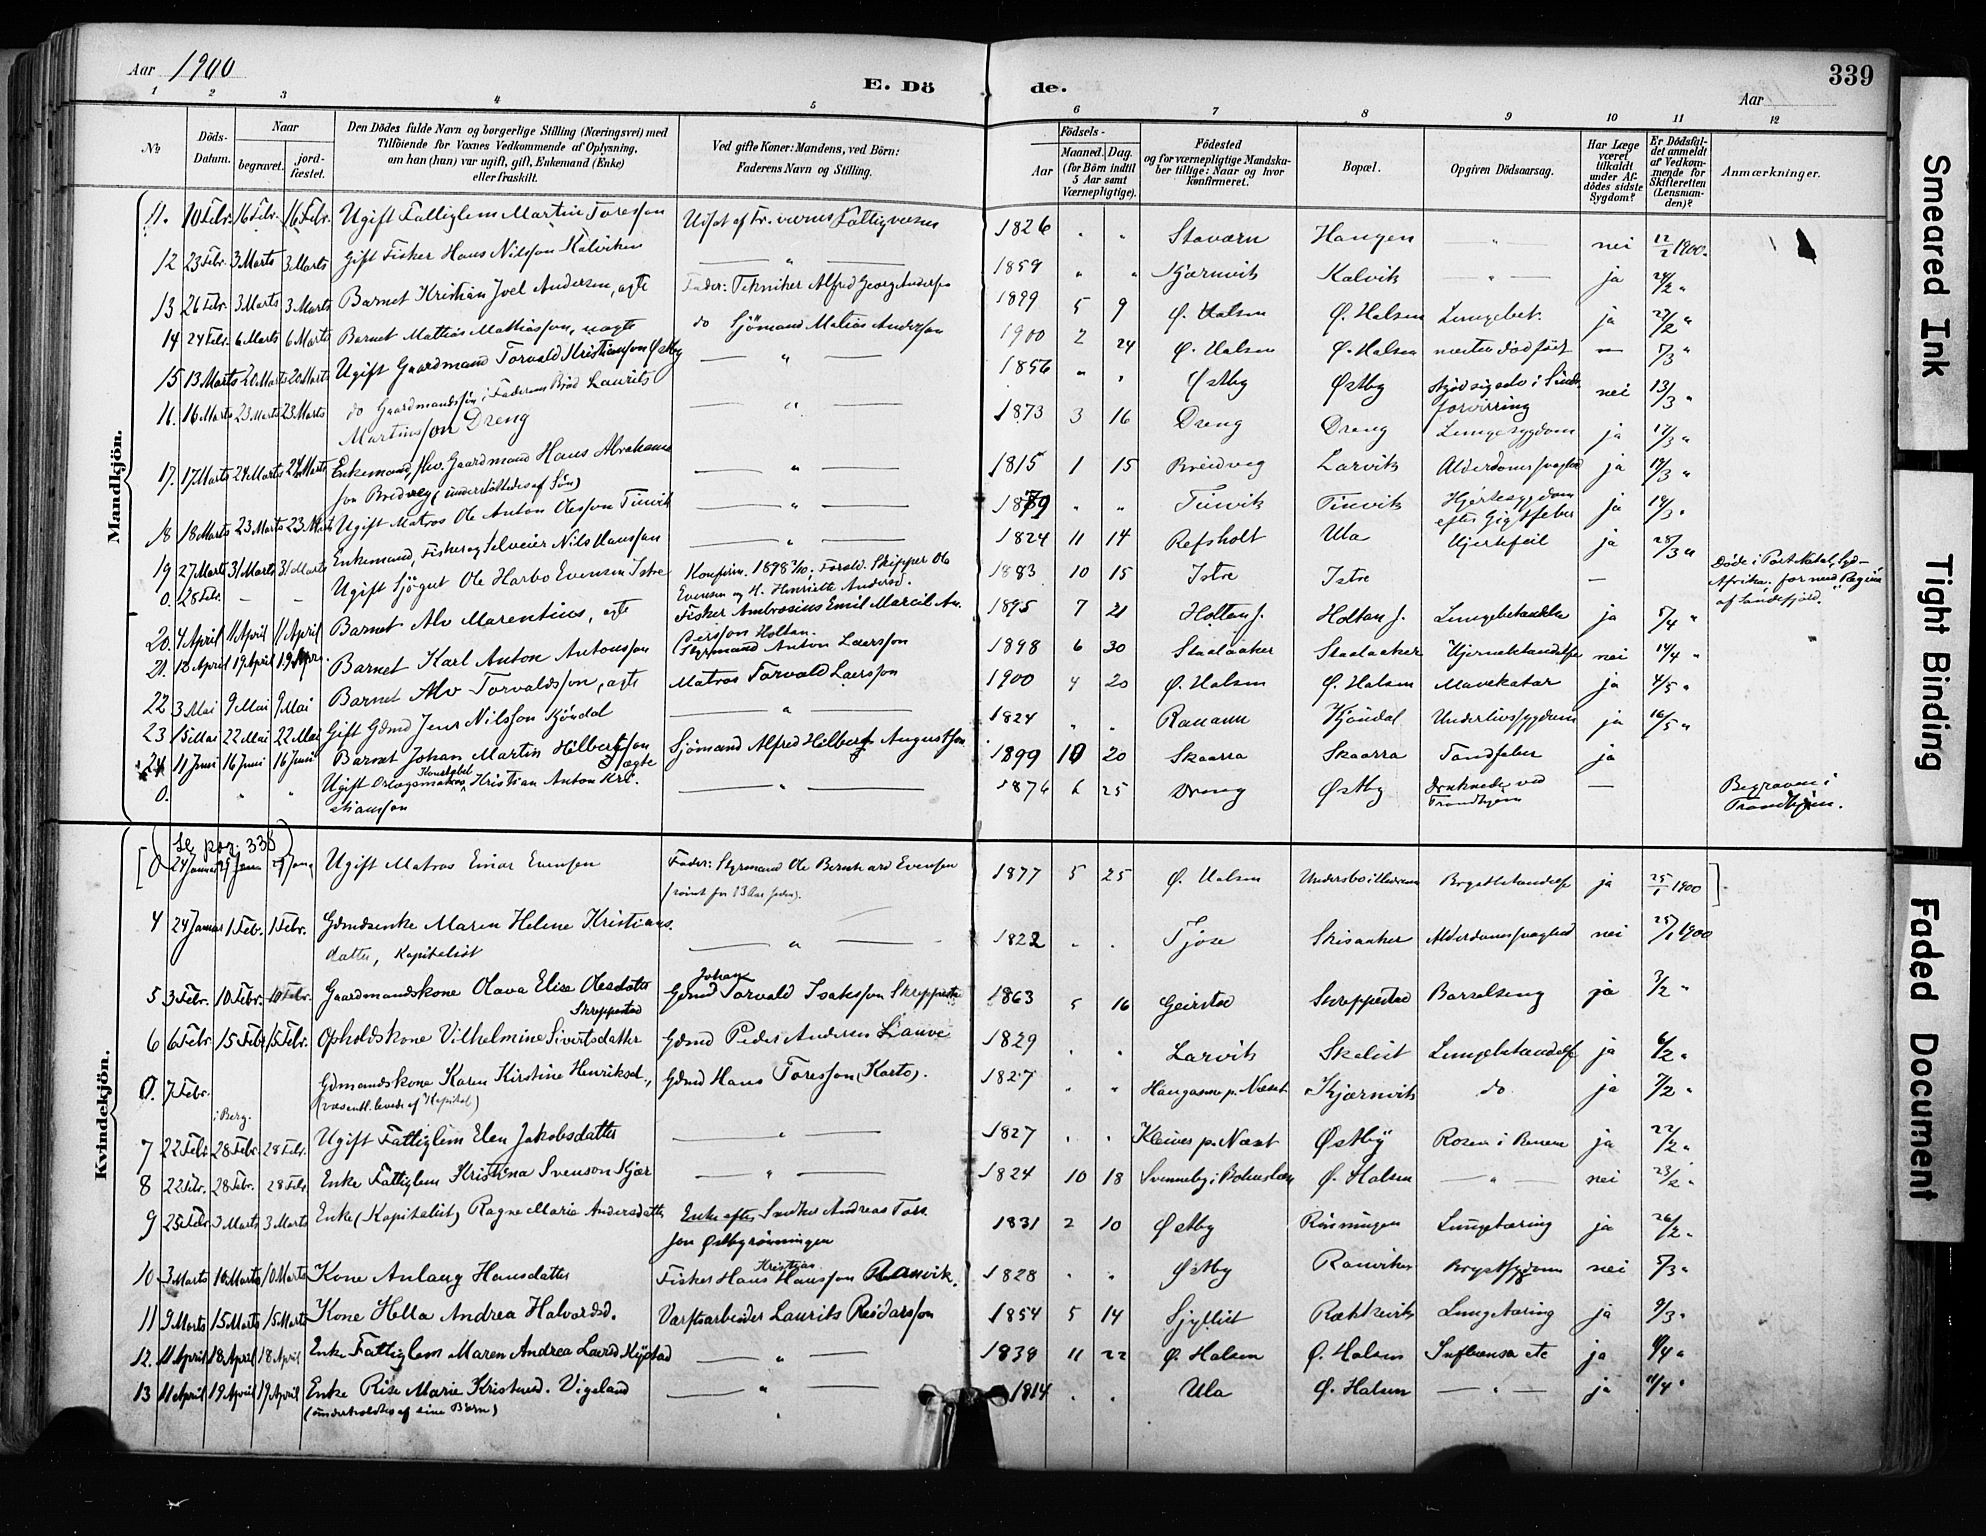 Aar 1900
E. Dö
de.
Aar
339
1 2 3 4 5 6 7 8 9 10 11 12
No
Döds-Datum.
Naar
begravet.
jord-fæstet.
Den Dödes fulde Navn og borgerlige Stilling (Næringsvei) med
Tilföiende for Voxnes Vedkommende af Oplysning,
om han (hun) var ugift, gift, Enkemand (Enke)
eller fraskilt.
Ved gifte Koner: Mandens, ved Börn:
Faderens Navn og Stilling.
Födsels-
Aar
Maaned. Dag.
(for Börn indtil
5 Aar samt
Værnepligtige).
Födested
og for værnepligtige Mandska-
ber tillige: Naar og hvor
konfirmeret.
Bopæl.
Opgiven Dödsaarsag.
Har Læge
været
tilkaldt
under Af-
dödes sidste
Sygdom?
Er Dödsfal-
det anmeldt
af Vedkom-
mende for
Skifteretten
(Lensman-
den)?
Anmærkninger.
Mandkjön.
11. 10 Febr. 16 Febr. 16 Febr. Ugift Fattiglem Martin Toresson Fattigvæsen 1826 " " Staværn Haugen " nei 12/2 1900.
12 23 Febr. 3 Marts 3 Marts Gift Fisker Hans Nilsson Kalviken " 1859 " " Kjærnvik Kalvik " ja 24/2 "
13 26 Febr. 3 Marts 3 Marts Barnet Kristian Joel Andersen, ægte Fader: Tekniker Alfred Georg Andersen 1899 5 9 Ø. Halsen Ø. Halsen Lungebet. ja 27/2 "
14 24 Febr. 6 Marts 6 Marts Barnet Mathias Mathiasson, uægte do Sjömand Matias Anderson 1900 2 24 Ø. Halsen Ø. Halsen næsten dödfödt — 5/3 "
15 13 Marts 20 Marts 20 Marts Ugift Gaardmand Torvald Kristiansson Østby " 1856 " " Østby Østby skjöd sig selv i Sinds-
forvirring nei 13/3 "
16. 16 Marts 23 Marts 23 Marts do Gaardmandssön i Faderens Bröd Laurits
Martinsson Dreng " 1873 3 16 Dreng Dreng Lungesygdom ja 17/3 "
17. 17 Marts 24 Marts 24 Marts Enkemand, Gaardmand Hans Abraham-
son Bredveg (understöttedes af Sön) " 1815 1 15 Breidveg Larvik ja 19/3 "
18 18 Marts 23 Marts 23 Marts Ugift Matros Ole Anton Olsson Tinvik " 1879 " " Tinvik Tinvik Hjertesygdom
efter Gigtfeber ja 19/3 "
19 27 Marts 31 Marts 31 Marts Enkemand, Fisker og Selveier Nils Hansson " 1824 11 14 Refsholt Ula Hjertefeil ja 28/3 "
0. 28 Febr. — — Ugift Sjögut Ole Harbo Evensen Istre Konfirm. 1898 2/10, Foræld. Skipper Ole
Evensen og H. Henriette Andersd. 1883 10 15 Istre Istre — Døde i Port Natal, Syd-
Afrika, for med "Regina"
af Sandefjord.
20. 4 April 11 April 11 April Barnet Alv Marentius, ægte Fisker Ambrosius Emil Marcil An-
dersson Holtan. 1895 7 21 Holtan s. Holtan s. Lungebetændelse ja 5/4 "
21. 12 April 19 April 19 Apr. Barnet Karl Anton Antonsson Styrmand Anton Laersson 1898 6 30 Staalaaker Staalaaker Hjernebetændelse nei 14/4 "
22 3 Mai 9 Mai 9 Mai Barnet Alv Torvaldsson, ægte Matros Torvald Laersson 1900 4 20 Ø. Halsen Ø. Halsen Mavekatar ja 4/5 "
23 15 Mai 22 Mai 22 Mai Gift Gdmd Jens Nilsson Kjöndal " 1824 " " Kjöndal Underlivssygdom ja 16/5 "
24 11 Juni 16 Juni 16 Juni Barnet Johan Martin Hilbertsson ægte Sjömand Alfred Hilbert Augustson 1899 10 20 Skaarra Skaarra Tandfeber ja
0. " " Ugift Orlogsmatros Konstabel Kristian Anton Kri-
stiansson " 1876 6 25 Dreng Østby Druknede ved
Trondhjem — Begraven i
Trondhjem.
Kvindekjön.
(se pag. 338)
0 24 Januar Ugift Matros Einar Evensen Fader: Styrmand Ole Bernhard Evensen
(römt for 13 Aar siden). 1877 5 25 Ø. Halsen Brystbetændelse ja 25/1 1900
4 24 Januar 1 Febr. 1 Febr. Gdmdsenke Maren Helene Kristians-
datter, Kapitalist " 1822 " " Tjose Skisaaker Alderdomssvaghed nei 25/1 1900
5 3 Febr. 10 Febr. 10 Febr. Gaardmandskone Olava Elise Olesdatter
Skreppestad Gdmd Johan Torvald Isaksson Skreppestad 1863 5 16 Geirstad Skreppestad Barselseng ja 3/2 "
6 6 Febr. 15 Febr 15 Febr. Opholdskone Vilhelmine Sivertsdatter Gdmd Peder Andersen Lauve 1829 " " Larvik Skalist Lungebetændelse ja 6/2 "
0. 7 Febr. i Berg. Gdmandskone Karen Kirstine Henriksd.,
(væsentl. levede af Kapital) Gdmd Hans Toresson (Karto). 1827 " " Haugane p. Næset Kjærnvik do ja 7/2 "
7 22 Febr. 28 Febr. 28 Febr. Ugift Fattiglem Elen Jakobsdatter " 1827 " " Kleiver p. Næset Østby Rosen i Benene ja 22/2 "
8 22 Febr. 28 Febr. 28 Febr Enke Fattiglem Kristina Svenson Kjær " 1824 10 18 Svenneby i Bohuslän Ø. Halsen " nei 23/2 "
9 25 Febr 3 Marts 3 Marts Enke (Kapitalist) Ragne Marie Andersdatter Enke efter Snedker Andreas Tors-
son Østbyrönningen 1831 2 10 Østby Rönningen Lungetæring ja 26/2 "
10 3 Marts 10 Marts 10 Marts Kone Anlaug Hansdatter Fisker Hans Kristian Hansson Ranvik. 1828 " " Østby Ranviken Brystsygdom nei 5/3 "
11 9 Marts 15 Marts 15 Marts Kone Hella Andrea Halvordsd. Værftsarbeider Laurits Reidarsson 1854 5 14 Sjyllist Rækkevik Lungetæring ja 9/3 "
12. 11 April 18 April 18 April Enke Fattiglem Maren Andrea Larsd. Nystad " 1839 11 22 Ø. Halsen Ø. Halsen Influensa etc ja 11/4 "
13 11 April 19 April 19 April Enke Rise Marie Kristensd. Vigeland
(underholdtes af sine Börn) " 1814 " " Ula Ø. Halsen " ja 11/4 "
Smeared Ink
Tight Binding
Faded Document